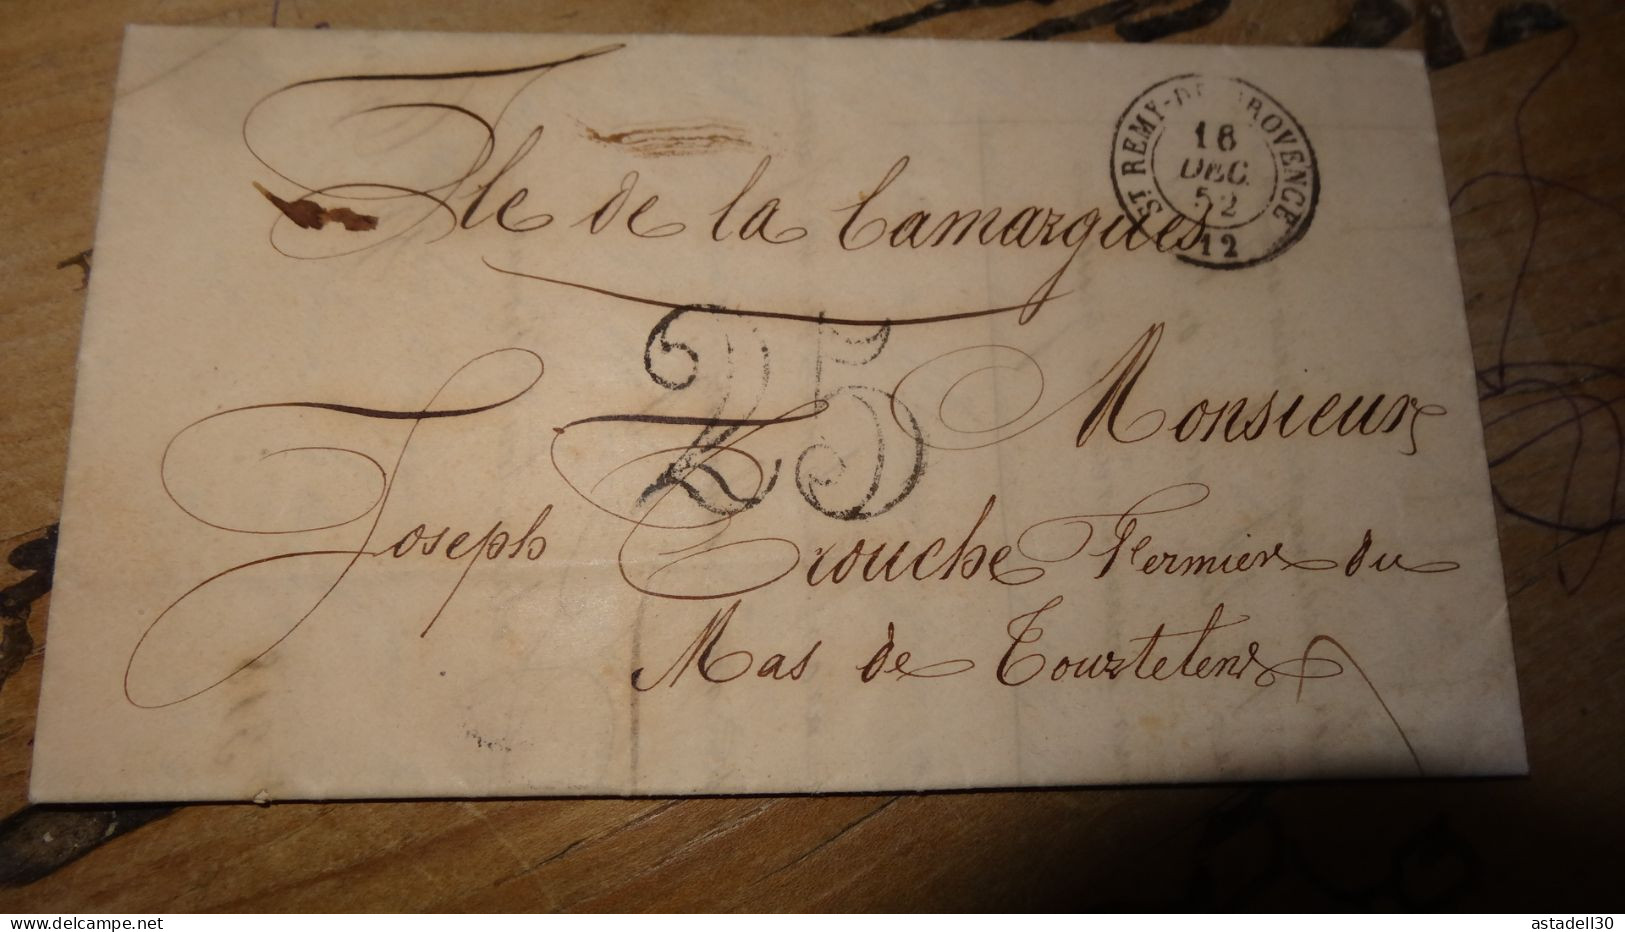 Ile de la Camargues
ST REMY-DE-PROVENCE
16
DEC.
52
12
25
Monsieur
Joseph Trouche Fermier du
Mas de Tourtelen
astadell30